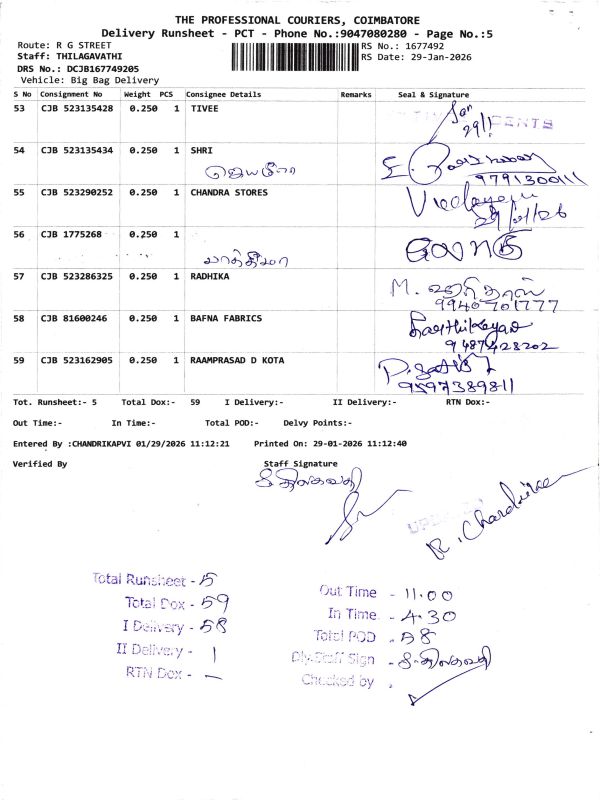 THE PROFESSIONAL COURIERS, COIMBATORE
Delivery Runsheet - PCT - Phone No.:9047080280 - Page No.:5
Route: R G STREET
RS No.: 1677492
Staff: THILAGAVATHI
RS Date: 29-Jan-2026
DRS No.: DCJB167749205
Vehicle: Big Bag Delivery
S No Consignment No Weight PCS Consignee Details Remarks Seal & Signature
53 CJB 523135428 0.250 1 TIVEE
29/1
54 CJB 523135434 0.250 1 SHRI
9791300111
55 CJB 523290252 0.250 1 CHANDRA STORES
29/01/26
56 CJB 1775268 0.250 1
57 CJB 523286325 0.250 1 RADHIKA
M.
9940701777
58 CJB 81600246 0.250 1 BAFNA FABRICS
Karthikeyan
9487428202
59 CJB 523162905 0.250 1 RAAMPRASAD D KOTA
9597389811
Tot. Runsheet:- 5 Total Dox:- 59 I Delivery:- II Delivery:- RTN Dox:-
Out Time:- In Time:- Total POD:- Delvy Points:-
Entered By :CHANDRIKAPVI 01/29/2026 11:12:21 Printed On: 29-01-2026 11:12:40
Verified By Staff Signature
சு.திலகவதி
R. Chandrika
Total Runsheet - 5
Total Dox - 59
I Delivery - 58
II Delivery - 1
RTN Dox - —
Out Time - 11.00
In Time - 4.30
Total POD - 58
Dly.Staff Sign - சு.திலகவதி
Checked by -